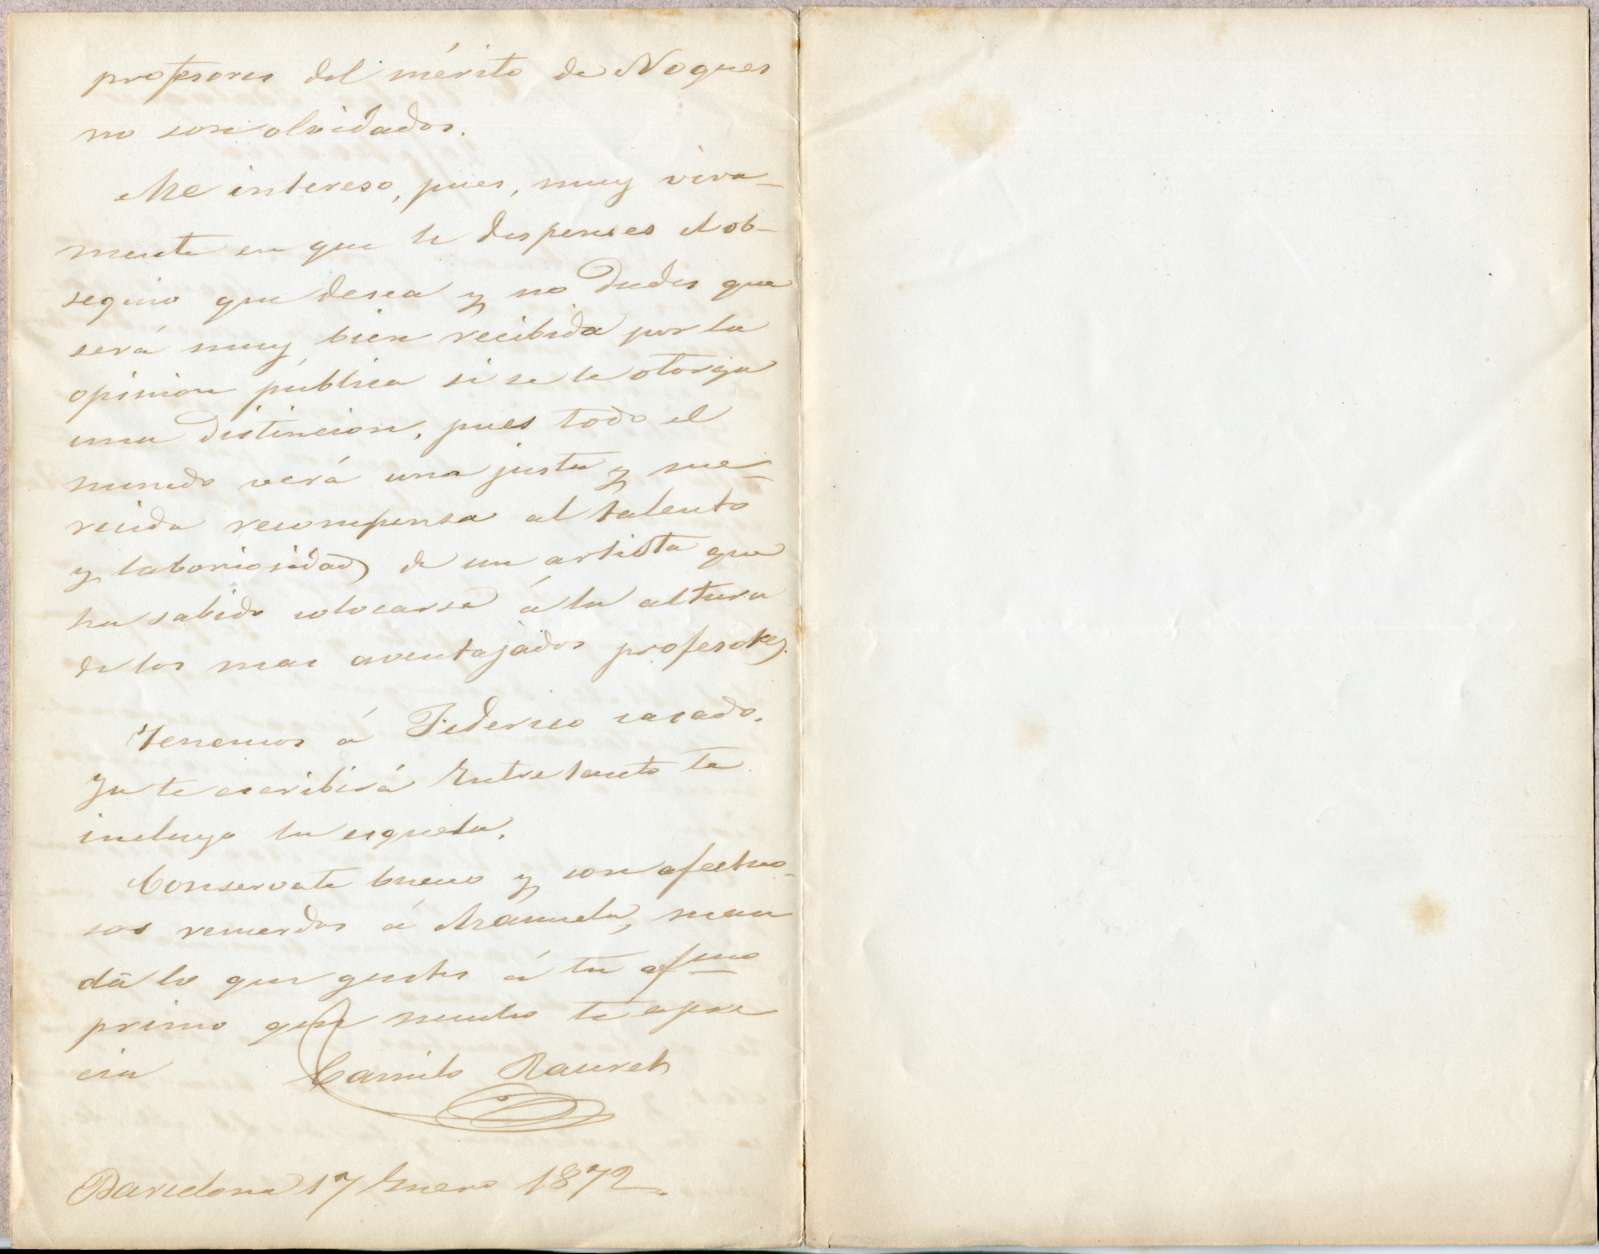 profesores del mérito de Nogues
no son olvidados.
Me intereso, pues, muy viva-
mente en que le dispenses el ob-
sequio que desea y no dudes que
será muy bien recibida por la
opinion pública si se le otorga
una distincion, pues todo el
mundo verá una justa y me-
recida recompensa al talento
y laboriosidad de un artista que
ha sabido colocarse á la altura
de los mas aventajados profesores.
Tenemos á Federico casado.
Ya te escribirá Entretanto te
incluyo la esquela.
Conservate bueno y con afectuo-
sos recuerdos á Manuela, man
da lo que gustes á tu afmo
primo que mucho te apre
cia Camilo Mauret
Barcelona 17 Enero 1872.